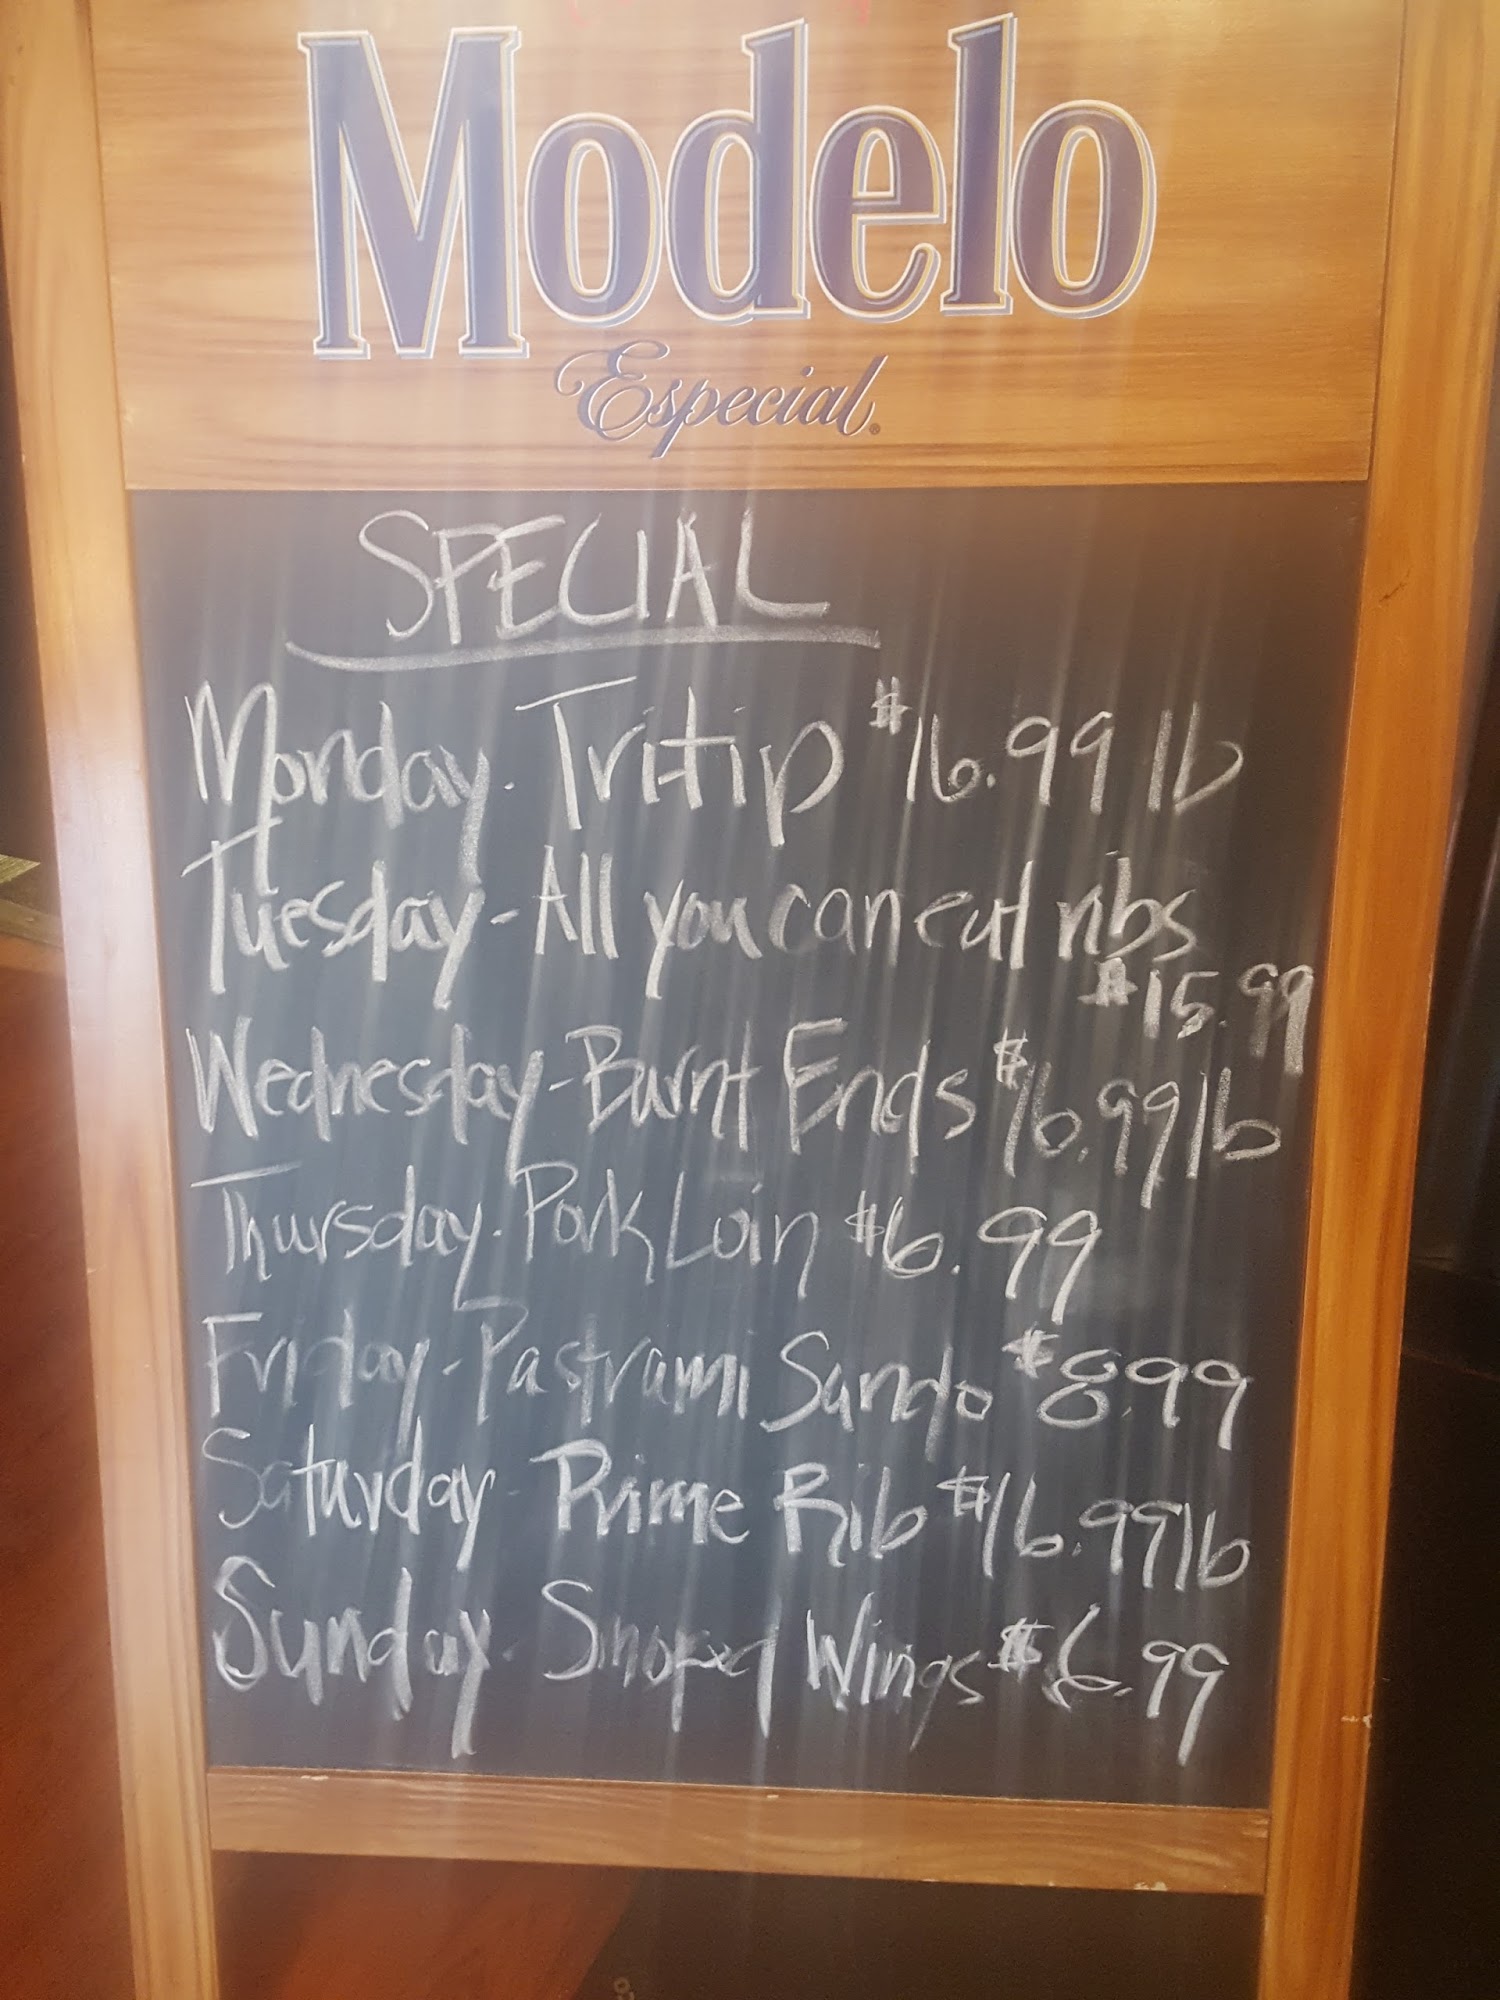 Modelo
Especial
SPECIAL
Monday. Tritip $16.99 lb
Tuesday - All you can eat ribs
$15.99
Wednesday - Burnt Ends $16.99 lb
Thursday. Pork Loin $6.99
Friday - Pastrami Sando $8.99
Saturday - Prime Rib $16.99 lb
Sunday - Smoked Wings $6.99